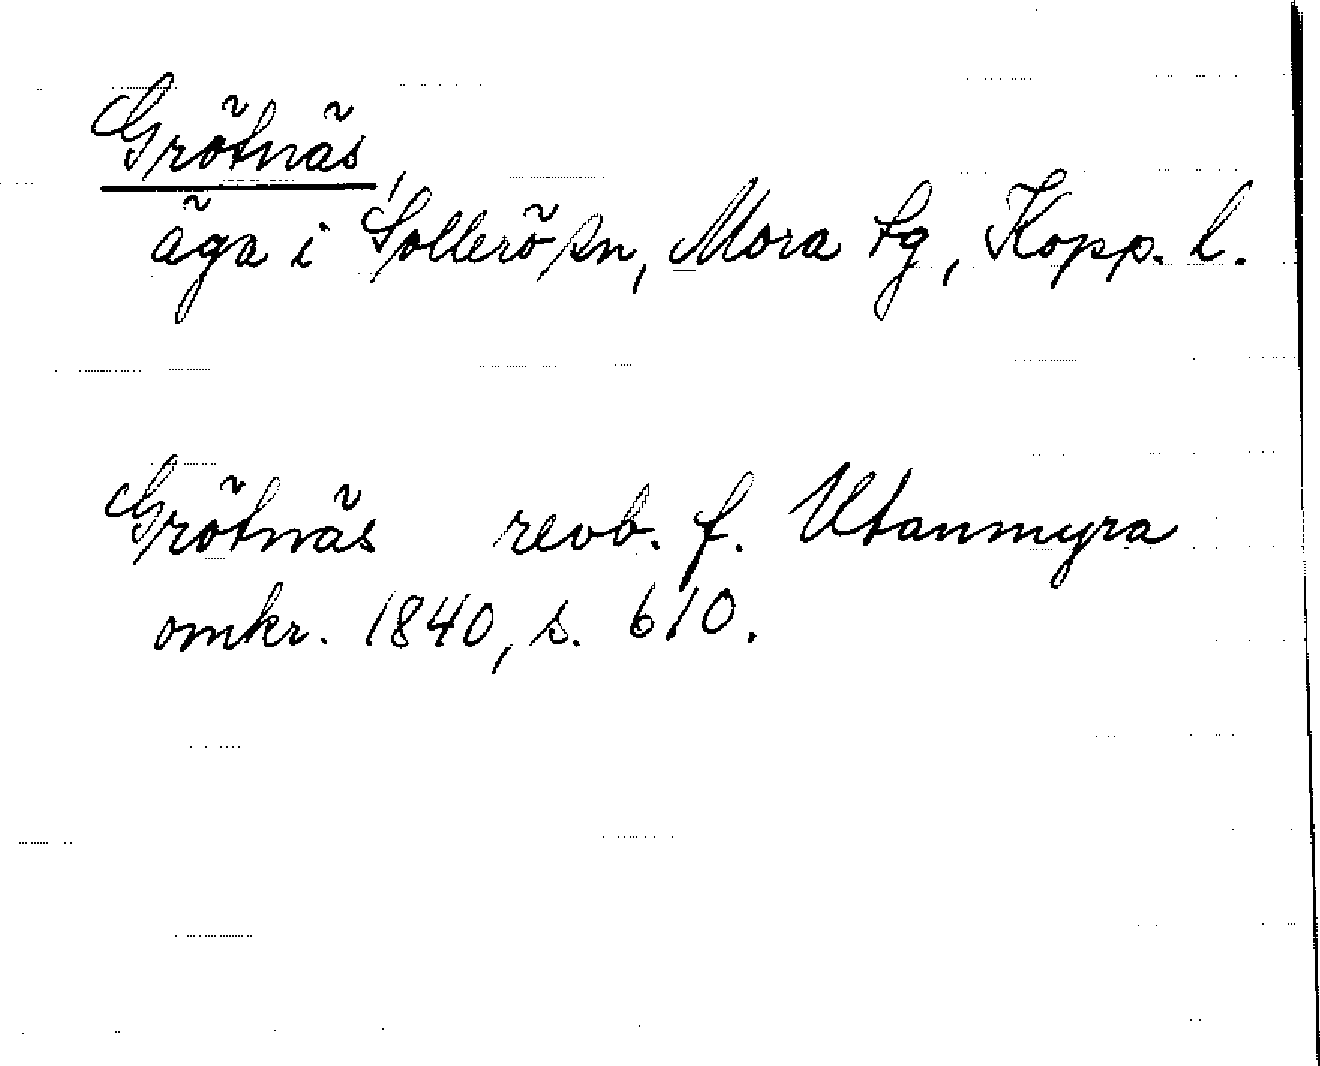 Grötnäs,
äga i Sollerö sn, Mora tg, Kopp. l.
Grötnäs revb. f. Utanmyra
omkr. 1840, s. 610.